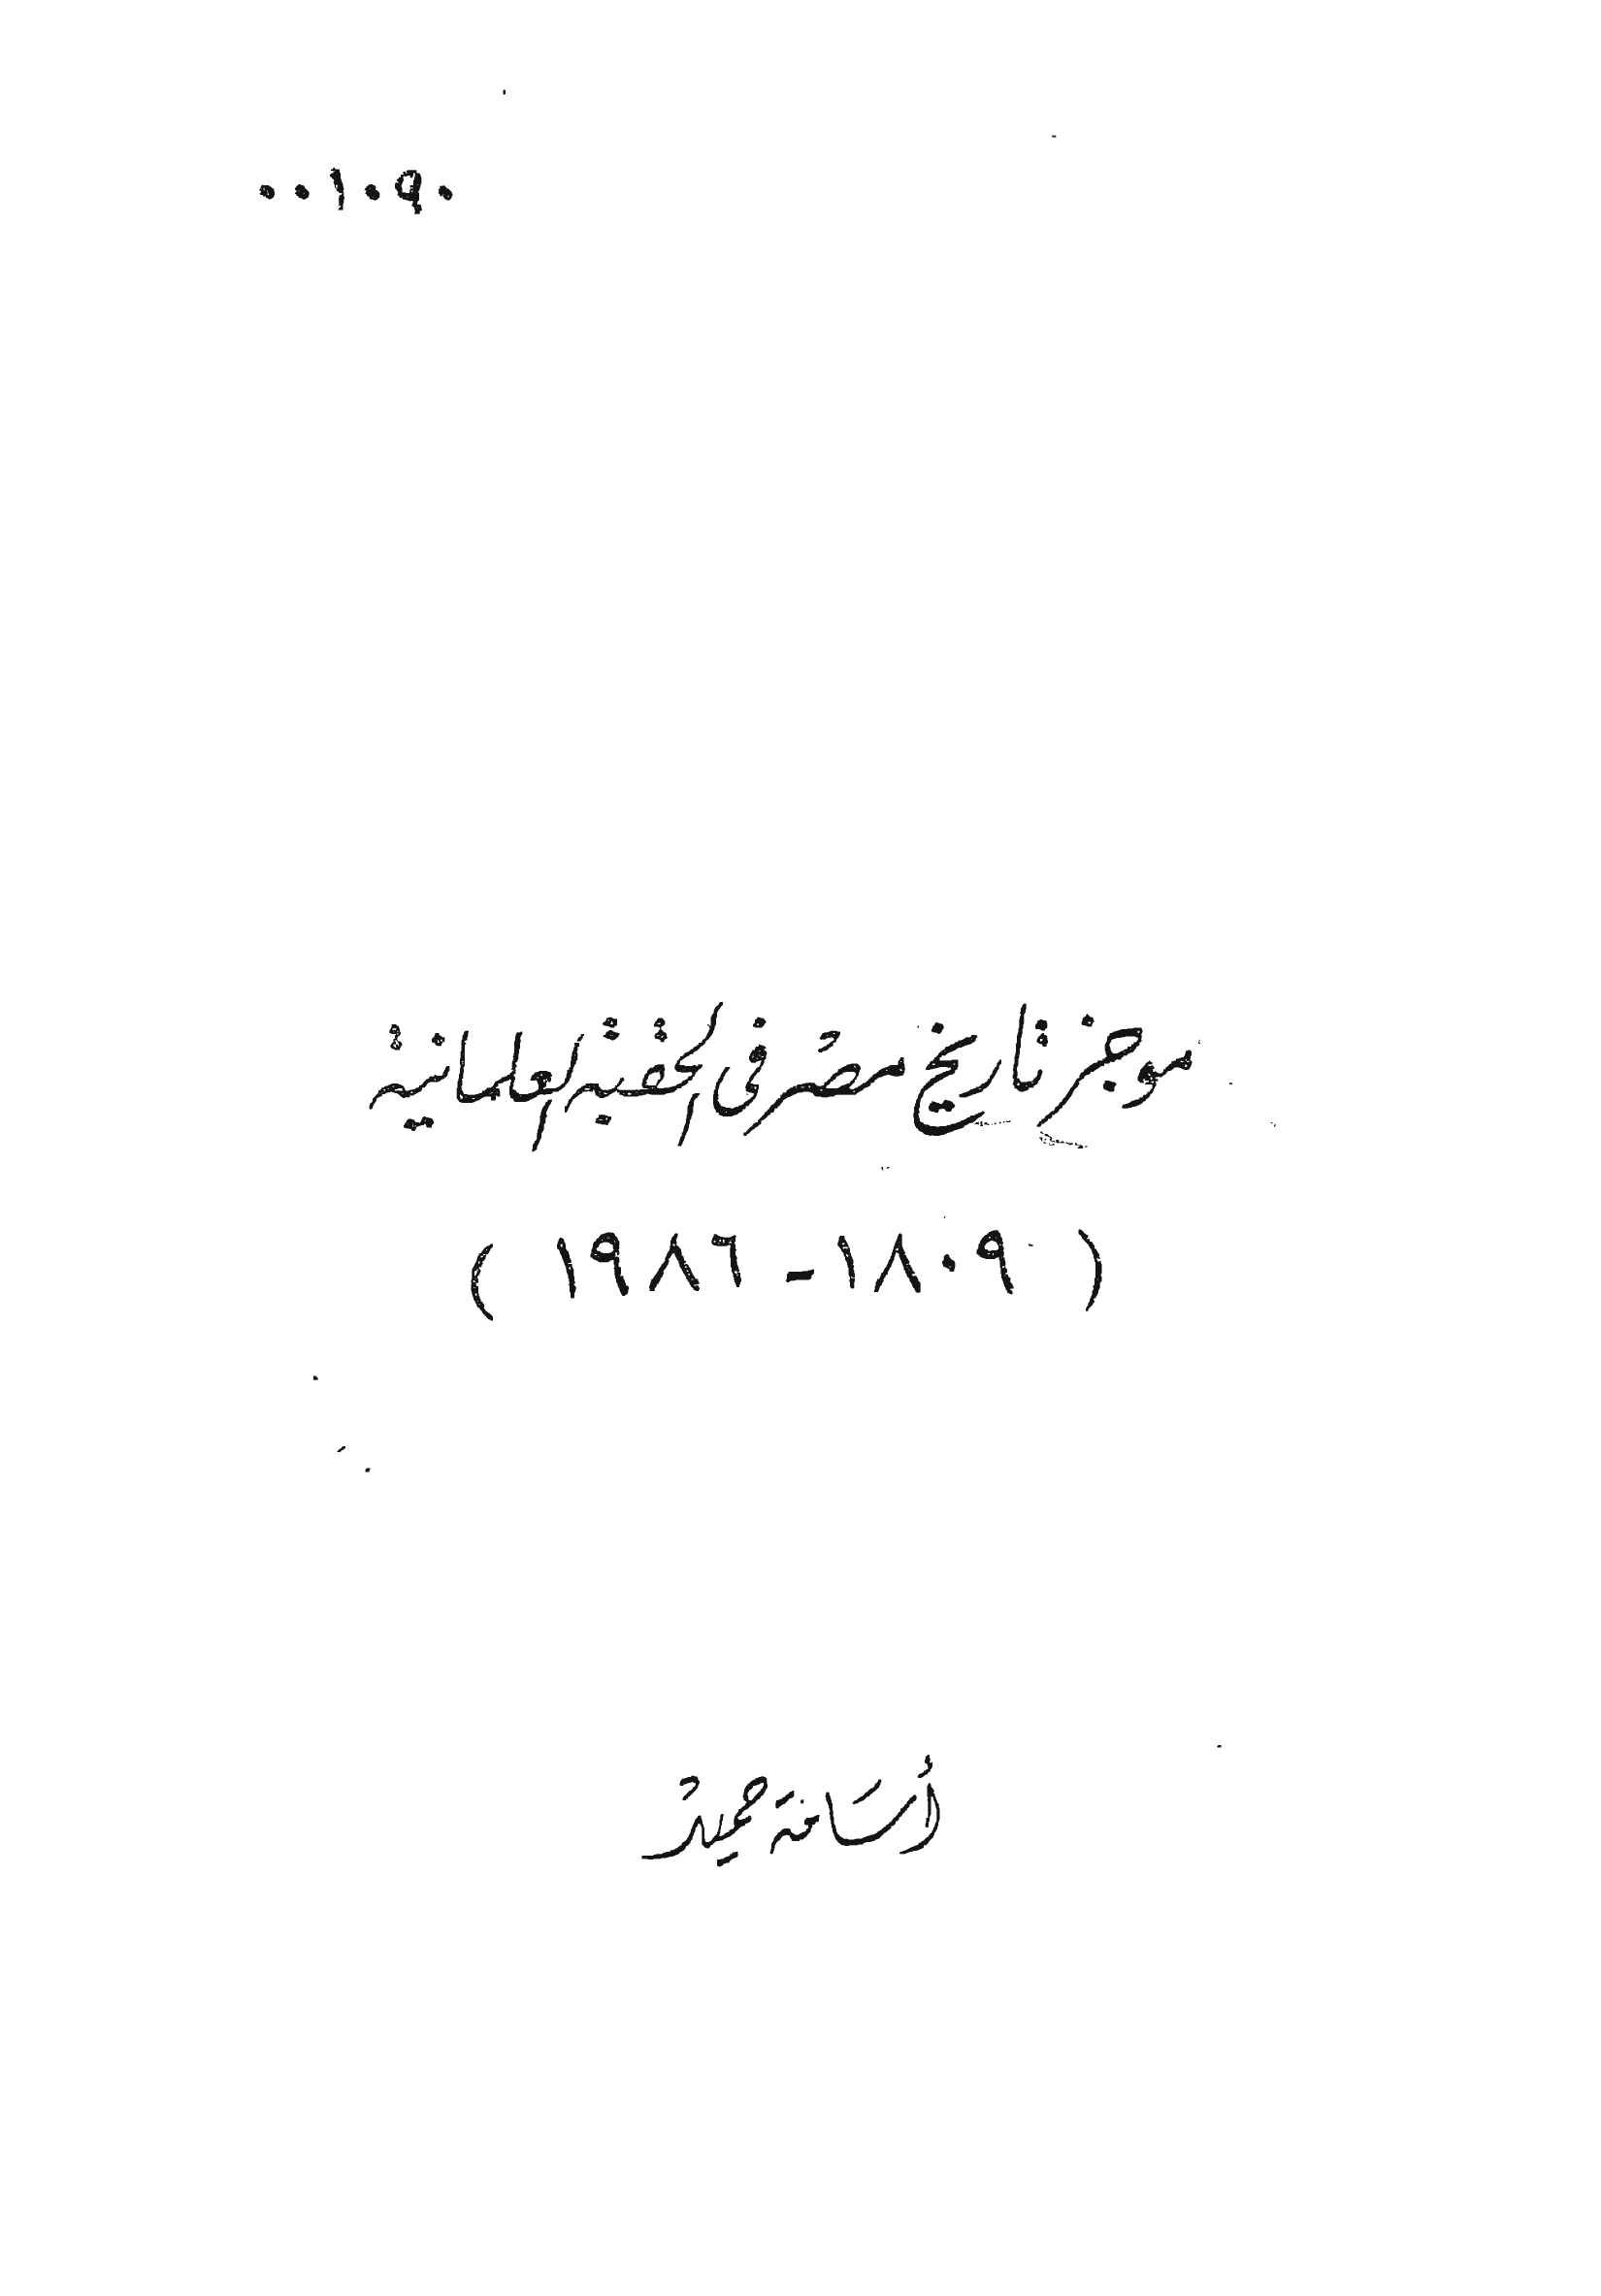 ٠٠١٠٩٠
موجز تاريخ مصر فى الحقبة العلمانية
( ١٨٠٩ - ١٩٨٦ )
أسامة حميد